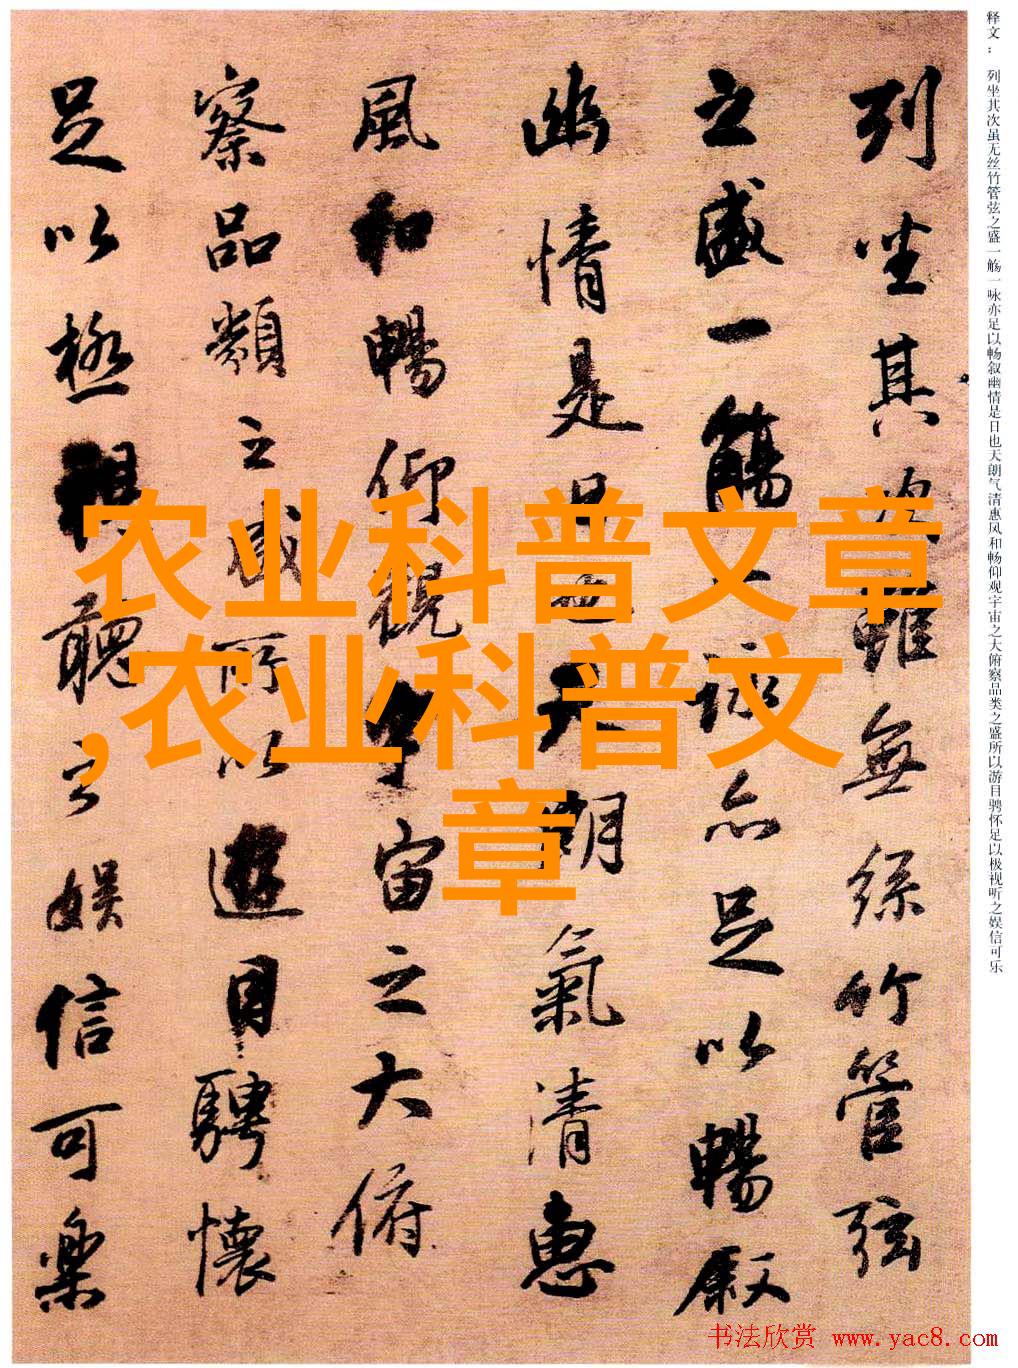 列坐其次雖無絲竹管弦
之盛一觴一詠亦足以暢叙
幽情是日也天朗氣清惠
風和暢仰觀宇宙之大俯
察品類之盛所以遊目騁懷
足以極視聽之娱信可樂
释文： 列坐其次虽无丝竹管弦之盛一觞一咏亦足以畅叙幽情是日也天朗气清惠风和畅仰观宇宙之大俯察品类之盛所以游目骋怀足以极视听之娱信可乐
农业科普文章
,农业科普文
章
书法欣赏 www.yac8.com